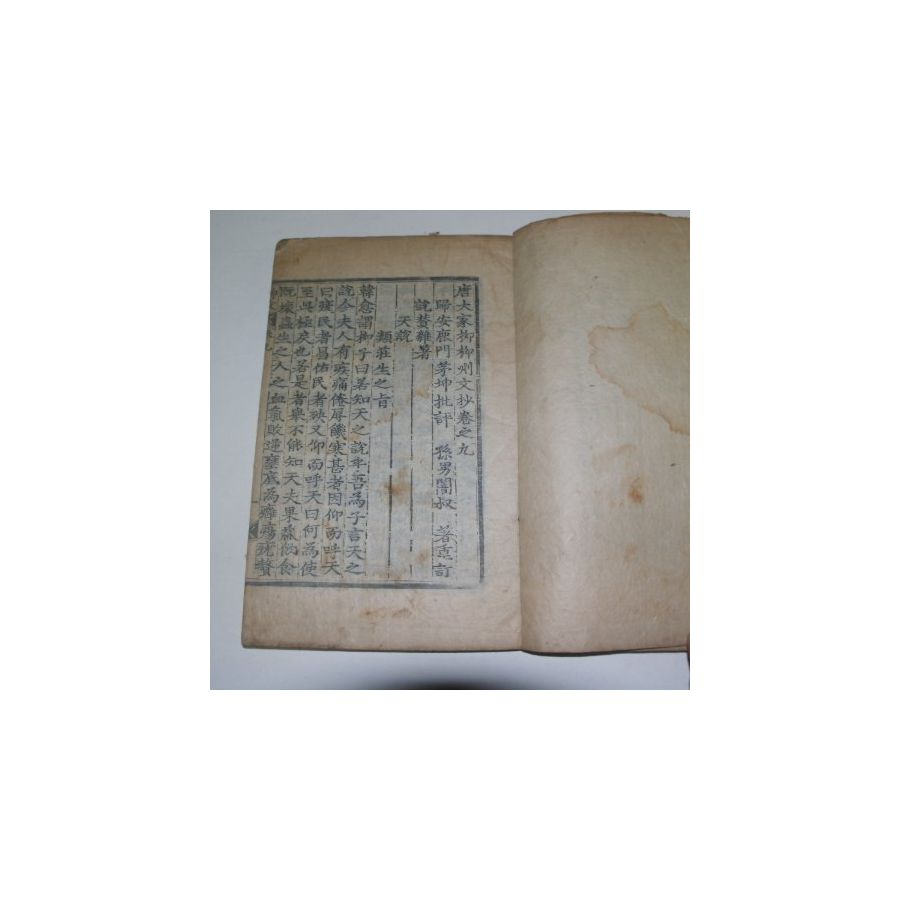 唐大家柳柳州文抄卷之九
歸安鹿門茅坤批評 孫男闇叔 著重訂
說贊雜著
天說
類莊生之旨
韓愈謂柳子曰若知天之說乎吾為子言天之
說今夫人有疾痛倦辱饑寒甚者因仰而呼天
曰殘民者昌佑民者殃又仰而呼天曰何為使
至此極戾也若是者舉不能知天夫果蓏飲食
既壞蟲生之人之血氣敗逆壅底為癰瘍疣贅